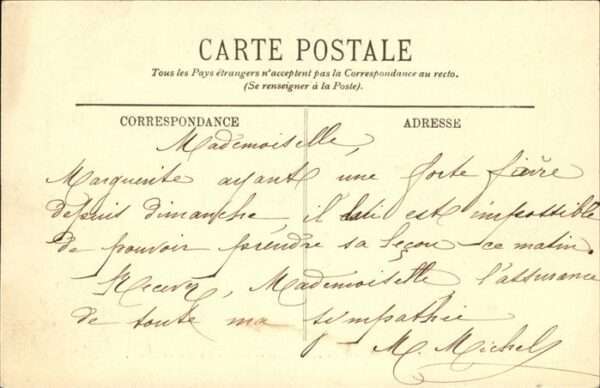 CARTE POSTALE
Tous les Pays étrangers n'acceptent pas la Correspondance au recto.
(Se renseigner à la Poste).
CORRESPONDANCE
ADRESSE
Mademoiselle,
Marguerite ayant une forte fièvre
depuis dimanche, il lui est impossible
de pouvoir prendre sa leçon ce matin.
Recevez, Mademoiselle l'assurance
de toute ma sympathie
M. Michel